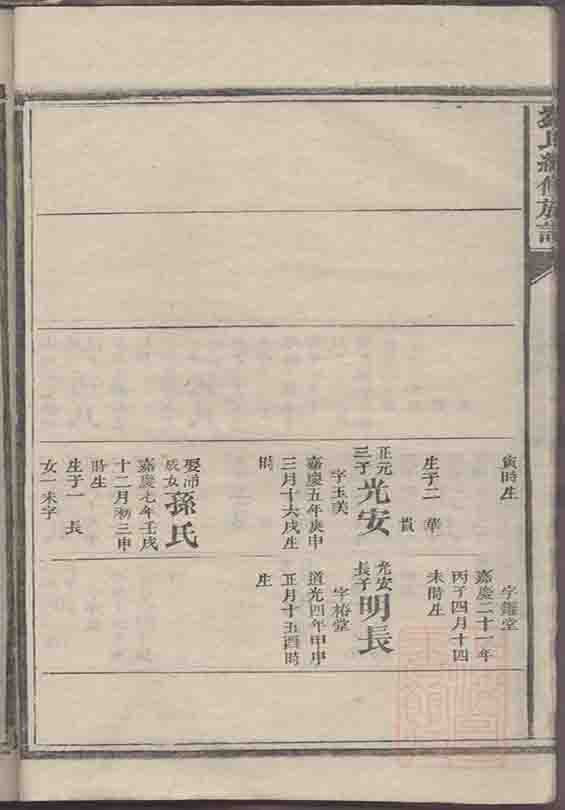 劉氏續修族譜
寅時生
生子二 華
貴
正元
三子
光安
字玉美
嘉慶五年庚申
三月十六戌生
時
娶浦
成女
孫氏
嘉慶七年壬戌
十二月初三申
時生
生子一 長
女一未字
字鑑堂
嘉慶二十一年
丙子四月十四
未時生
光安
長子
明長
字椿堂
道光四年甲申
正月十五酉時
生